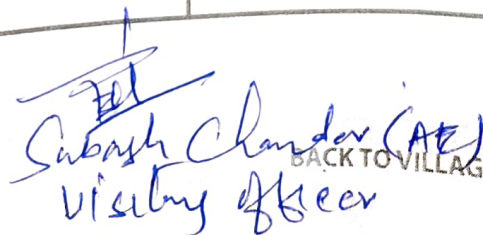 Subash Chander (AE)
BACK TO VILLAG
Visiting Officer